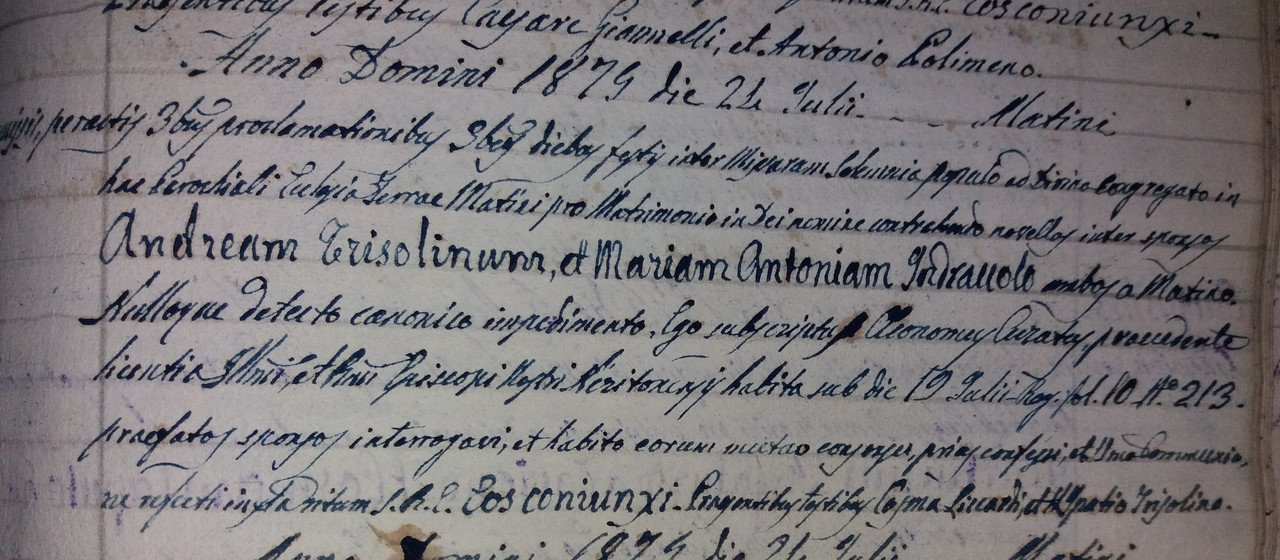 Praesentibus testibus Caesare Giannelli, et Antonio Polimeno. S.R.E. Eos coniunxi_
Anno Domini 1875 die 24 Julii. _ _ Matini
peractis 3bus proclamationibus 3bus diebus festis inter Missarum solemnia populo ad Divina congregato in
hac Parochiali Eclesia Terrae Matini pro Matrimonio in Dei nomine contrahendo novellos inter sponsos
Andream Trisolinum, et Mariam Antoniam Indraccolo ambos a Matino.
Nulloque detecto canonico impedimento, Ego subscriptus Oeconomus Curatus, praecedente
licentia Illmi, et Rmi Episcopi Nostri Neritonensis habita sub die 19 Julii Reg. fol. 10 No. 213.
praefatos sponsos interrogavi, et habito eorum mutuo consensu, prius confessi, et Sma Communio,
ne refecti in f.a ritum S.R.E. Eos coniunxi. Praesentibus testibus Cosma Piccardi, et Ignatio Trisolino.
Anno Domini 1875 die 24 Julii Matini